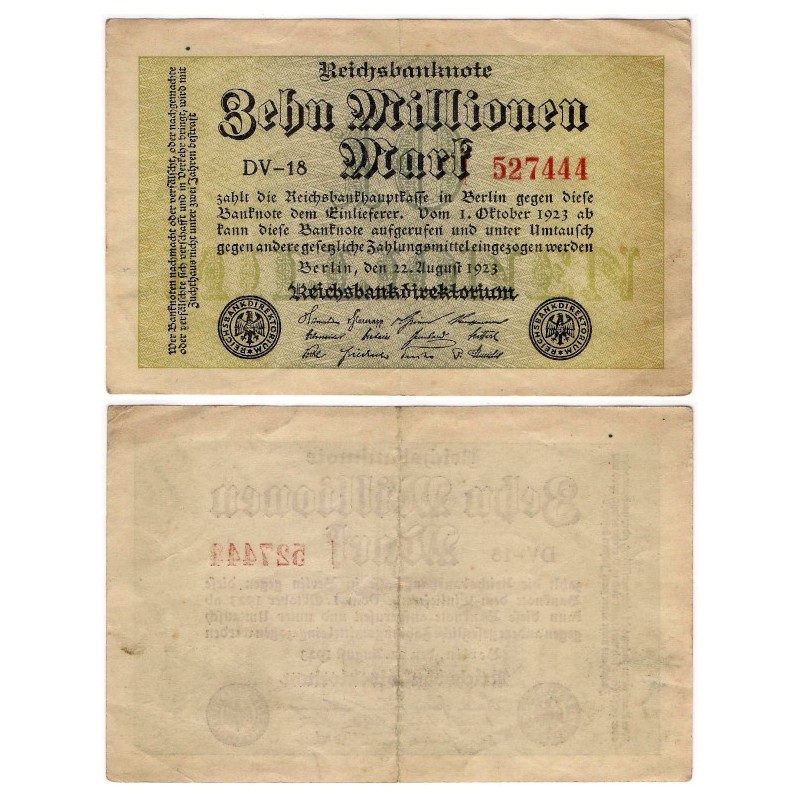 Reichsbanknote
Zehn Millionen
Mark
DV-18
527444
zahlt die Reichsbankhauptkasse in Berlin gegen diese
Banknote dem Einlieferer. Vom 1. Oktober 1923 ab
kann diese Banknote aufgerufen und unter Umtausch
gegen andere gesetzliche Zahlungsmittel eingezogen werden
Berlin, den 22. August 1923
Reichsbankdirektorium
REICHSBANKDIREKTORIUM
REICHSBANKDIREKTORIUM
Wer Banknoten nachmacht oder verfälscht, oder nachgemachte
oder verfälschte sich verschafft und in Verkehr bringt, wird mit
Zuchthaus nicht unter zwei Jahren bestraft
Reichsbanknote
Zehn Millionen
Mark
DV-18
527444